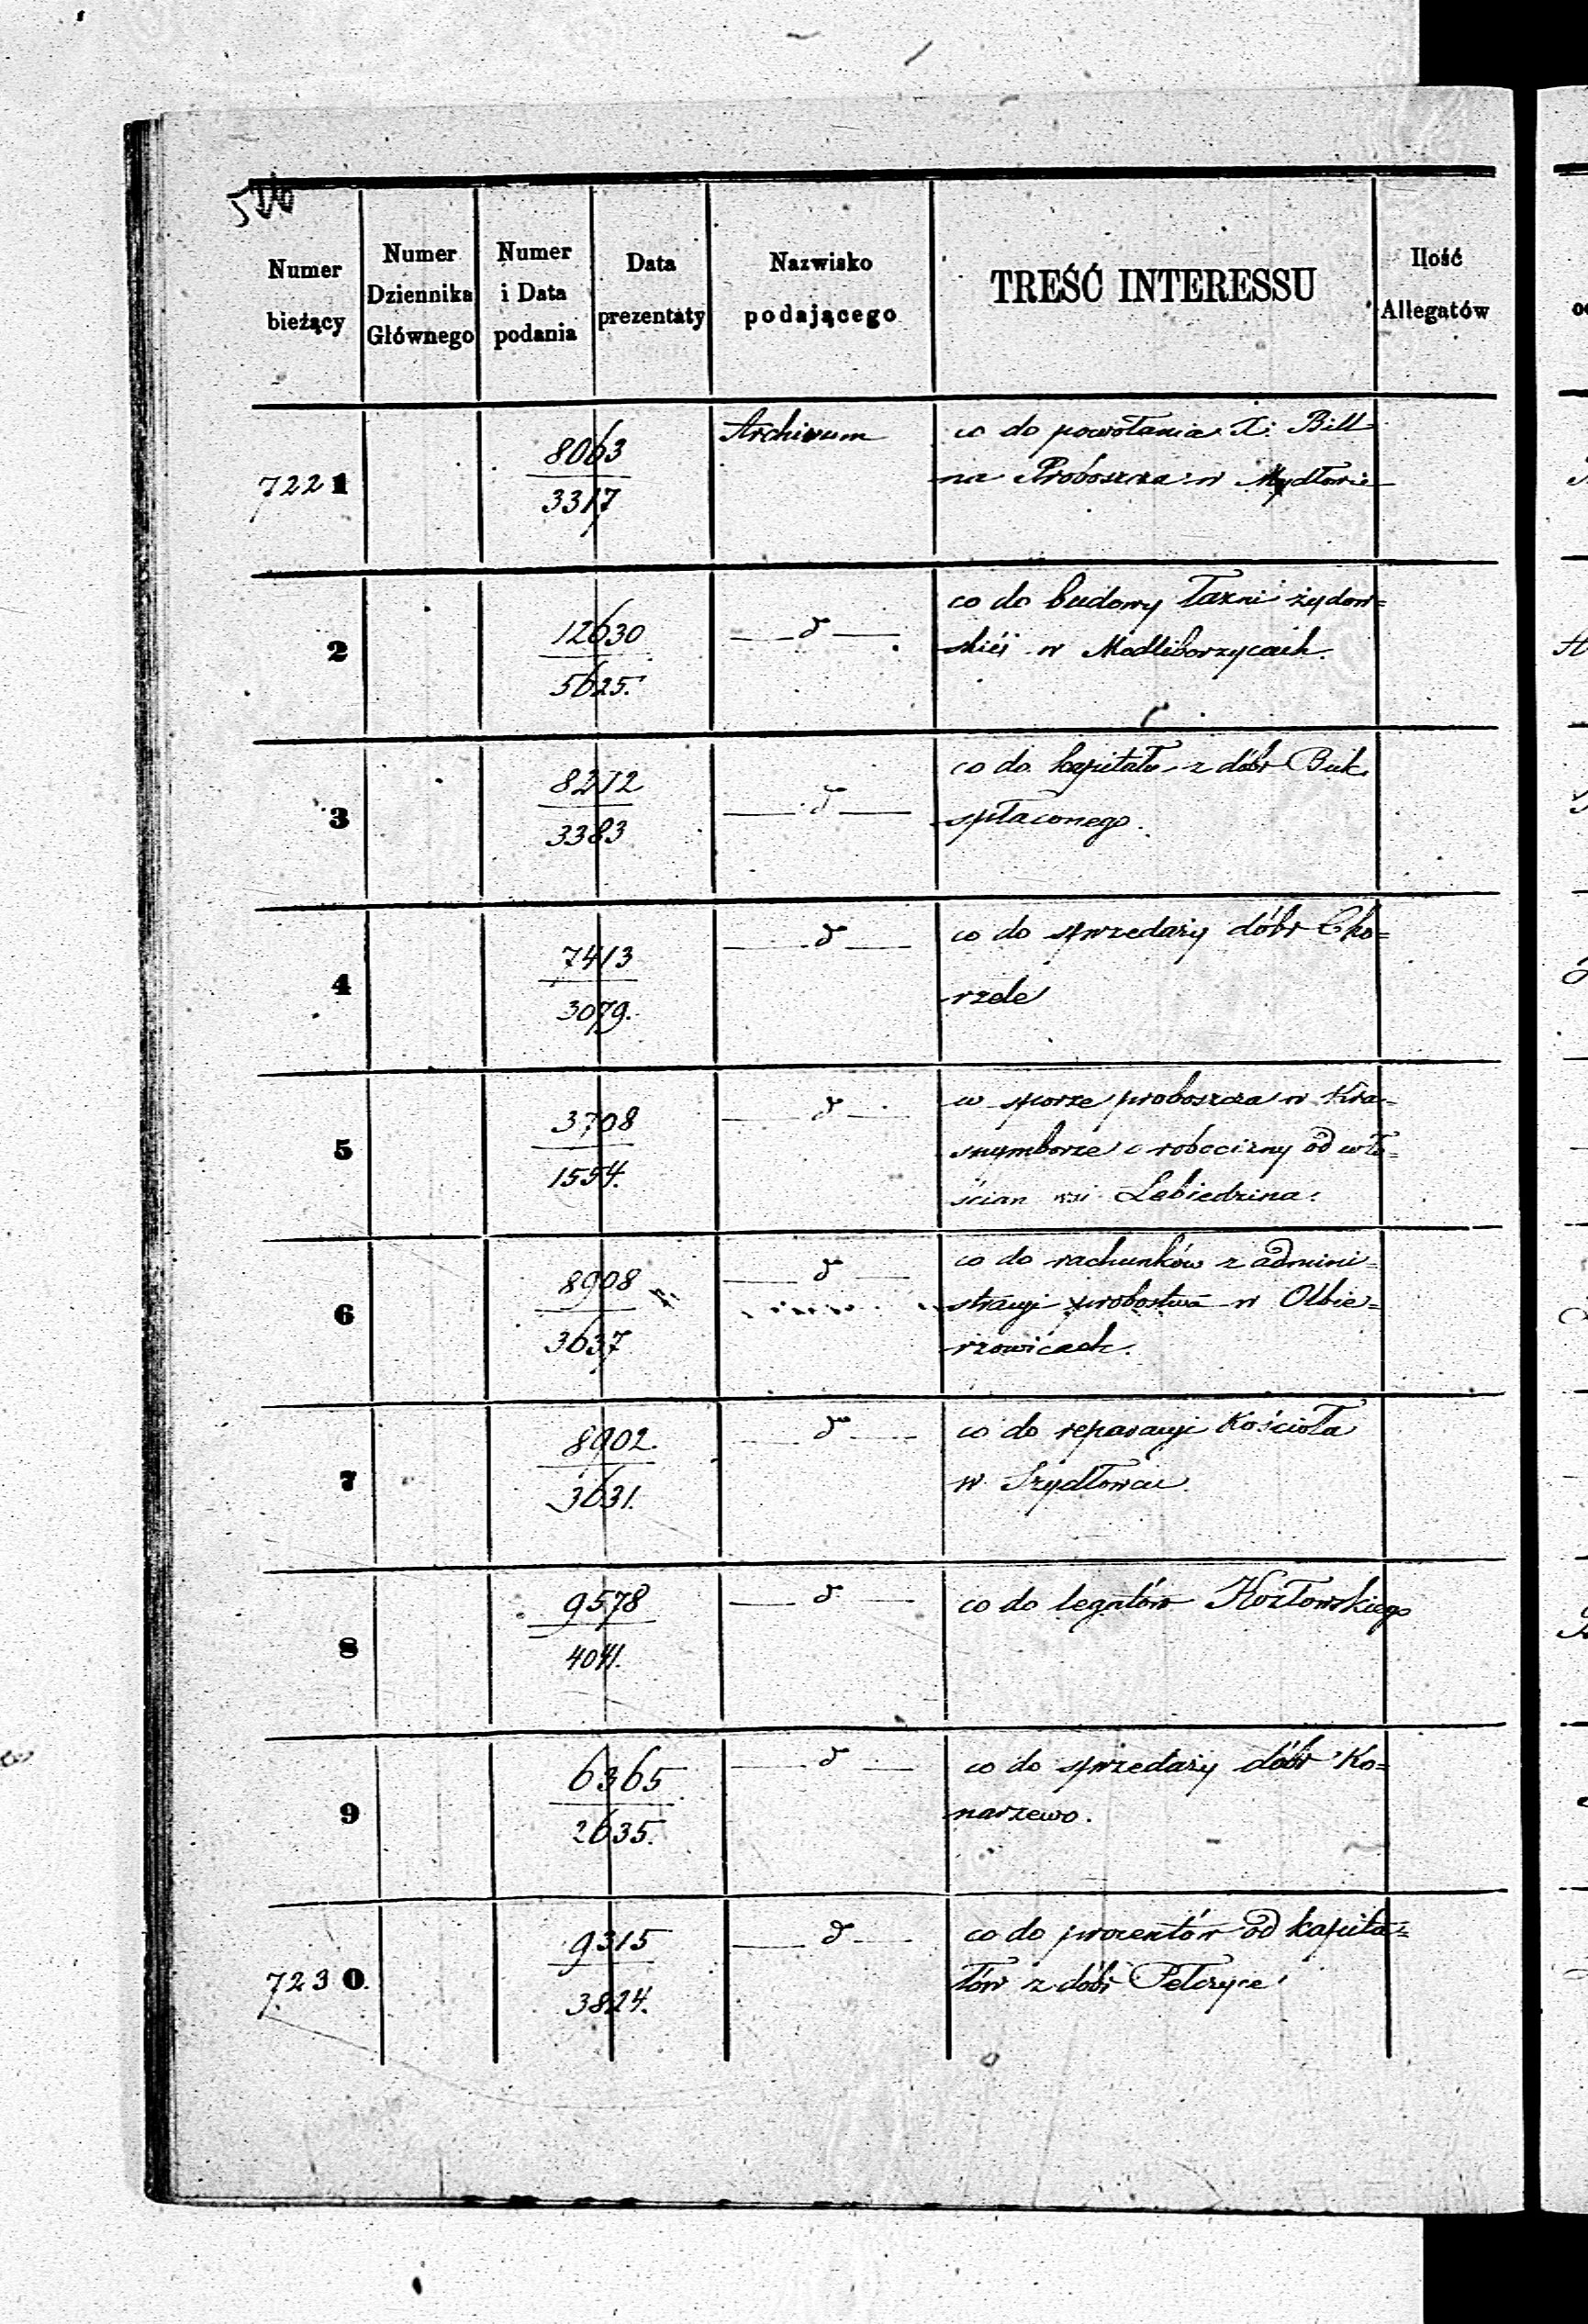 Numer bieżący
Numer Dziennika Głównego
Numer i Data podania
Data prezentaty
Nazwisko podającego
TREŚĆ INTERESSU
Ilość Allegatów
7221
8063
3317
Archivum
co do powołania X. Bill
na Proboszcza w Mydłowie
2
12630
5625.
d
co do budowy Łazni żydow=
skiéj w Modliborzycach.
3
8212
3383
d
co do kapitału z dóbr Buk
spłaconego.
4
7413
3079.
d
co do sprzedaży dóbr Cho=
rzele
5
3708
1554.
d
w sporze proboszcza w Kra=
snymborze o robocizny od wło=
ścian wsi Lebiedzina.
6
8908
3637
d
co do rachunków z admini=
stracyi probostwa w Olbie=
rzowicach.
7
8902.
3631.
d
co do reparacyi Kościoła
w Szydłowcu.
8
9578
4041.
d
co do legatów Kozłowskiego
9
6365
2635.
d
co do sprzedaży dóbr Ko=
narzewo.
7230.
9315
3824.
d
co do procentów od kapita=
łów z dóbr Pełczyce